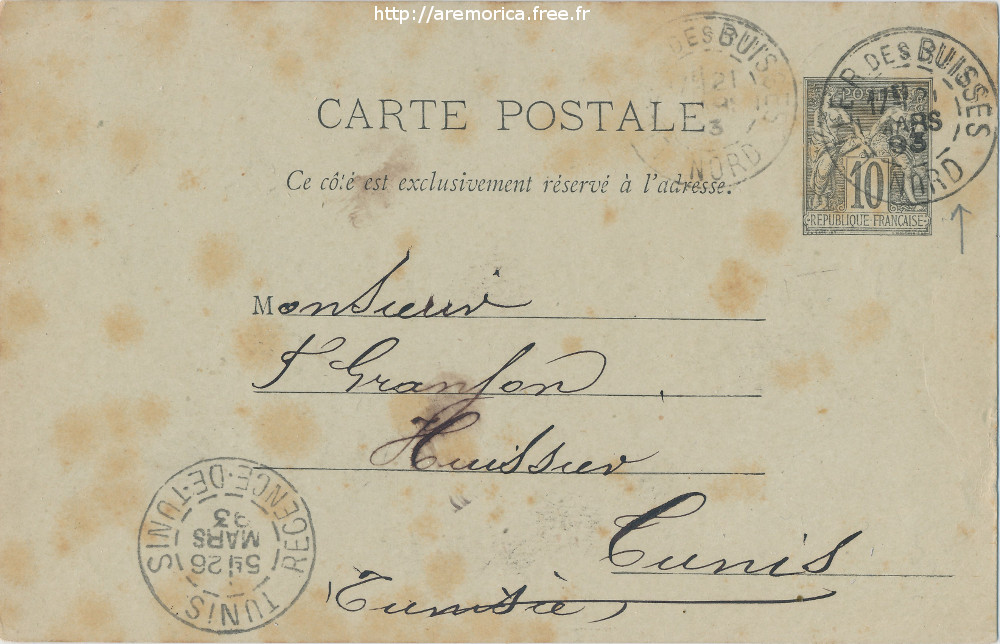 http://aremorica.free.fr
DES BUISSES
21
3
NORD
DES BUISSES
21
MARS
93
NORD
POSTES
10
REPUBLIQUE FRANÇAISE
CARTE POSTALE
Ce côté est exclusivement réservé à l'adresse.
Monsieur
Huissier
Tunis
(Tunisie)
TUNIS
REGENCE-DE-TUNIS
26
MARS
93